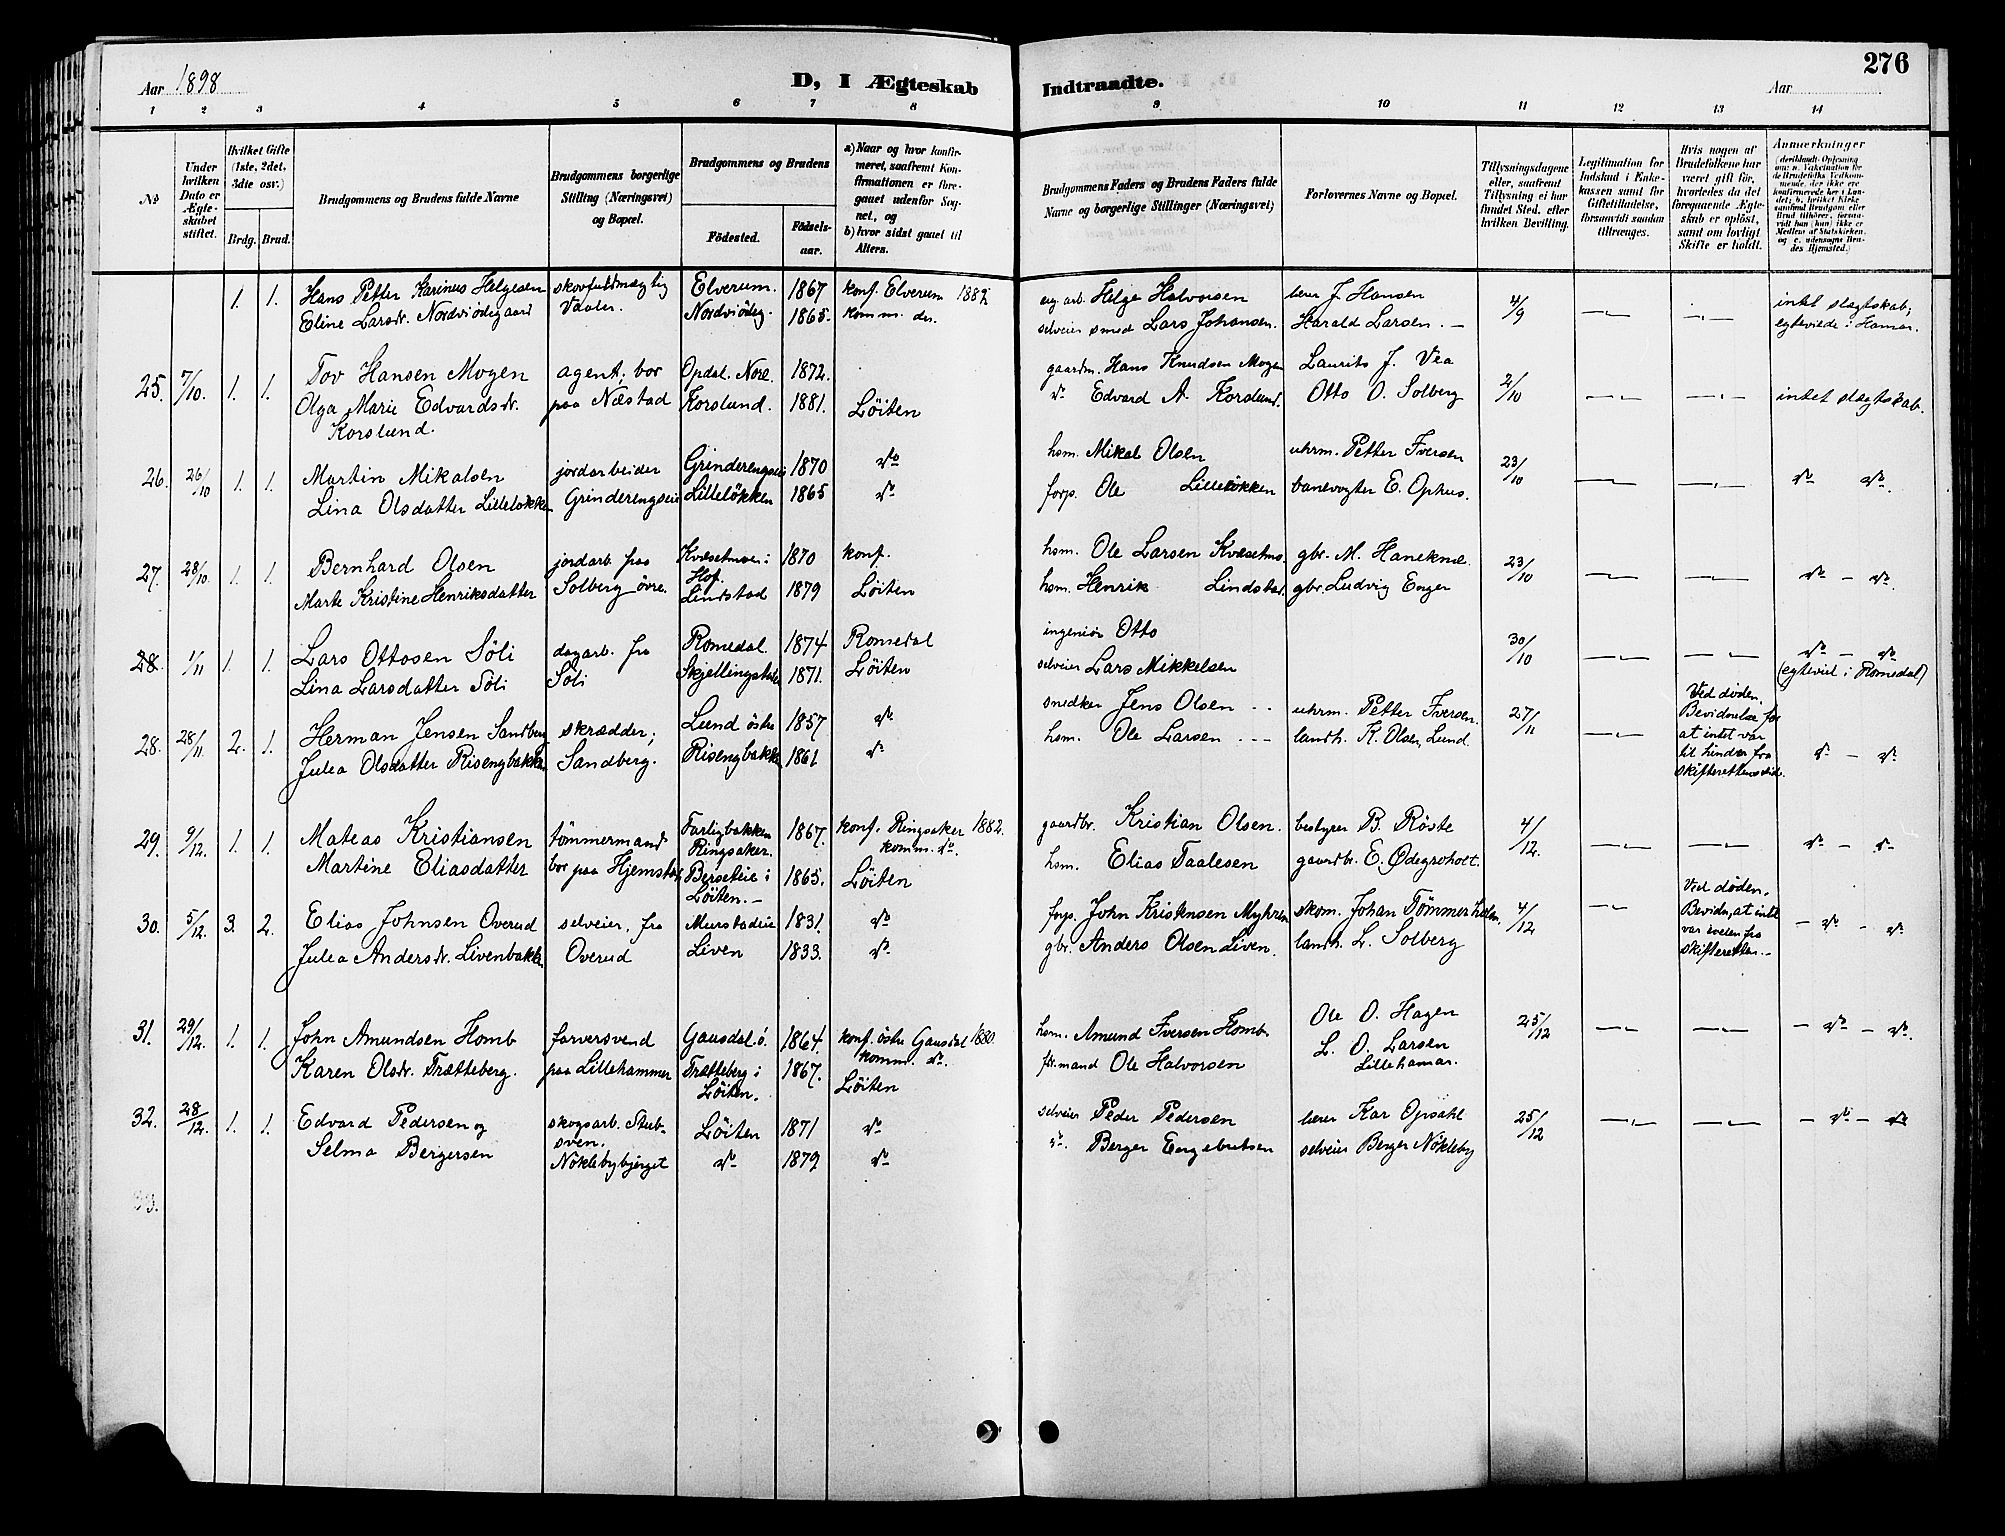 276
Aar 1898
D, I Ægteskab Indtraadte.
Aar
1 2 3 4 5 6 7 8 9 10 11 12 13 14
No
Under hvilken Dato er Ægteskabet stiftet.
Hvilket Gifte (1ste, 2det, 3dte osv.)
Brdg. Brud.
Brudgommens og Brudens fulde Navne
Brudgommens borgerlige Stilling (Næringsvei) og Bopæl.
Brudgommens og Brudens
Fødested.
Fødselsaar.
a) Naar og hvor konfirmeret, saafremt Konfirmationen er foregaaet udenfor Sognet, og
b) hvor sidst gaaet til Alters.
Brudgommens Faders og Brudens Faders fulde Navne og borgerlige Stillinger (Næringsvei)
Forlovernes Navne og Bopæl.
Tillysningsdagene eller, saafremt Tillysning ei har fundet Sted, efter hvilken Bevilling.
Legitimation for Indskud i Enkekassen samt for Giftetilladelse, forsaavidt saadan tiltrænges.
Hvis nogen af Brudefolkene har været gift før, hvorledes da det foregaaende Ægteskab er opløst, samt om lovligt Skifte er holdt.
Anmærkninger
1. 1. Hans Petter Karinus Helgesen skovfuldmægtig Elverum. 1867 konf. Elverum 1882 Helge Halvorsen lærer J. Hansen 4/9 intet slægtskab,
Eline Larsdr. Nordviødegaard Vaaler. Nordviødeg. 1865. komm. do. selveier smed Lars Johansen. Harald Larsen. — egteviede i Hamar.
25. 7/10. 1. 1. Tov Hansen Mogen agent. bor Opdal. Nore. 1872. gaardm. Hans Knudsen Mogen Laurits J. Vea 2/10 intet slægtskab.
Olga Marie Edvardsdr. paa Næstad Korslund. 1881. Löiten do Edvard A. Korslund. Otto O. Solberg
Korslund.
26. 26/10 1. 1. Martin Mikalsen jordarbeider Grinderengseie 1870 do hsm. Mikal Olsen uhrm. Petter Iversen 23/10 do do.
Lina Olsdatter Lilleløkken Grinderengseie Lilleløkken 1865 do forp. Ole Lilleløkken banevogter E. Ophus.
27. 28/10. 1. 1. Bernhard Olsen jordarb. paa Kvæsetmoen i Hof. 1870 konf. hsm. Ole Larsen Kvæsetmo. gbr. M. Haneknæ. 23/10 do — do.
Marte Kristine Henriksdatter Solberg övre. Lindstad 1879 Löiten hsm. Henrik Lindstad. gbr. Ludvig Enger
28. 1/11 1. 1. Lars Ottosen Söli dagarb. fra Romedal 1874 Romedal ingeniør Otto 30/10 do — do
Lina Larsdatter Söli Söli 1871. Löiten selveier Lars Mikkelsen (egteviet i Romedal)
28. 28/11. 2. 1. Herman Jensen Sandberg skrædder; Lund östre 1857 do snedker Jens Olsen -- uhrm. Petter Iversen. 27/11 Ved døden. Bevidnelse for at intet var til hinder fra do — do.
Julea Olsdatter Risengbakken Sandberg. Risengbakken 1861 do hsm. Ole Larsen --- landh. K. Olsen, Lund.
29. 9/12. 1. 1. Mateas Kristiansen tömmermand Farligbakken Ringsaker. 1867. konf. Ringsaker 1882. komm. do. gaardbr. Kristian Olsen. bestyrer B. Röste 4/12. do — do
Martine Eliasdatter bor paa Hjemstad Berseteie i Löiten.— 1865. Löiten hsm. Elias Taalesen gaardbr. E. Ødegroholt.
30. 5/12. 3. 2. Elias Johnsen Overud selveier, fra 1831. do forp. John Kristensen Myhren skom. Johan Tömmerholen 4/12 Ved døden. Bevidn, at intet var fra skifteretten.— — do — do.
Julea Andersdr. Livenbakken Overud Liven 1833. do. gbr. Anders Olsen Liven. landh. L. Solberg
31. 29/12. 1. 1. John Amundsen Homb farversvend Gausdal ö. 1864. konf. östre Gausdal 1880. komm. do. hsm. Amund Iversen Homb Ole O. Hagen 25/12 — do — do.
Karen Olsdr. Trætteberg. paa Lillehammer Trætteberg i Löiten. 1867. Löiten Ole Halvorsen L. O. Larsen Lillehamar.
32. 28/12. 1. 1. Edvard Pedersen og skogsarb. Stubsven. Löiten 1871 do selveier Peder Pedersen lærer Kar Opsahl 25/12 — do — do
Selma Bergersen Nöklebybjerget do 1879 do do. Berger Engebretsen selveier Berger Nökleby
33.